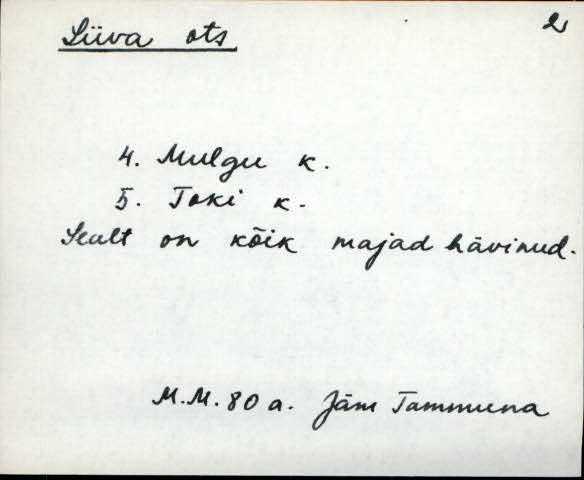 Liiva ots 2
4. Mulgu k.
5. Toki k.
Sealt on kõik majad hävinud.
M.M. 80 a. Jäm Tammuna